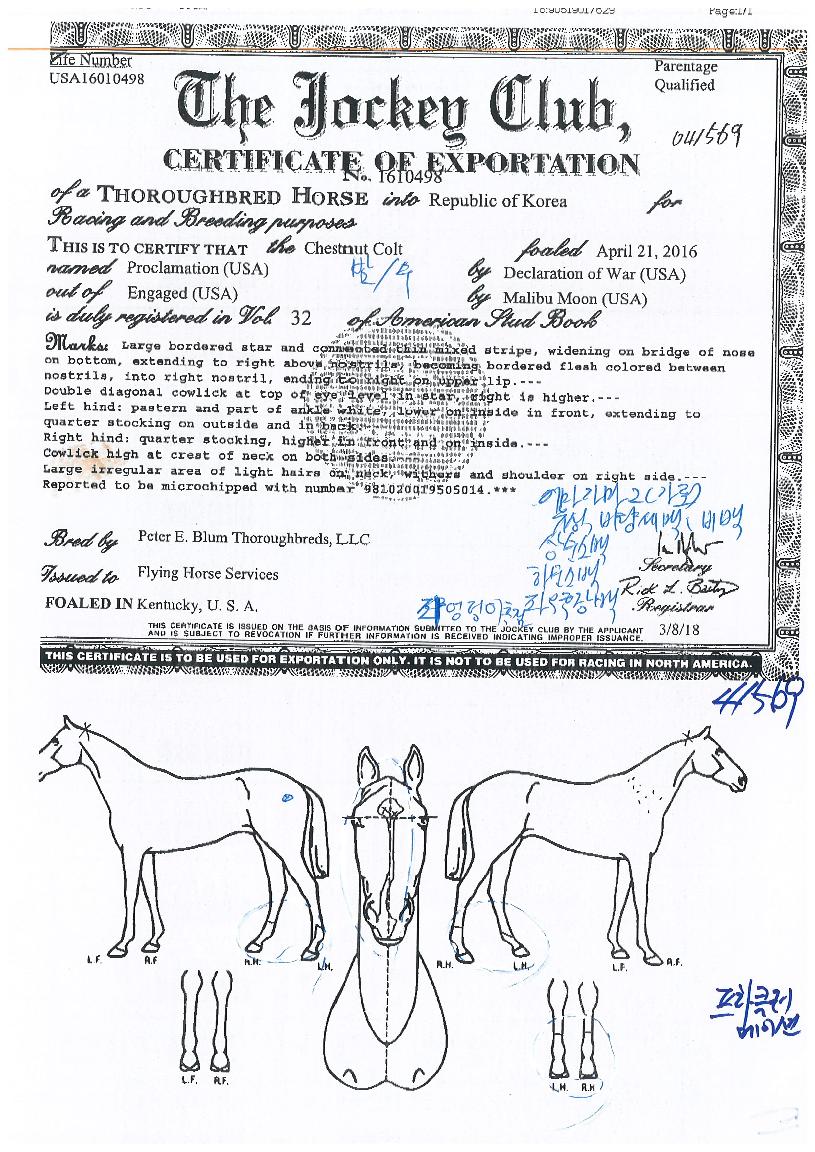 Page:1/1
Life Number
USA16010498
Parentage
Qualified
The Jockey Club,
041569
CERTIFICATE OF EXPORTATION
No. 1610498
of a THOROUGHBRED HORSE into Republic of Korea for
Racing and Breeding purposes
THIS IS TO CERTIFY THAT the Chestnut Colt foaled April 21, 2016
named Proclamation (USA) by Declaration of War (USA)
out of Engaged (USA) by Malibu Moon (USA)
is duly registered in Vol. 32 of American Stud Book
Marks: Large bordered star and connected thin mixed stripe, widening on bridge of nose
on bottom, extending to right above nostrils, becoming bordered flesh colored between
nostrils, into right nostril, ending to right on upper lip.---
Double diagonal cowlick at top of eye level in star, right is higher.---
Left hind: pastern and part of ankle white, lower on inside in front, extending to
quarter stocking on outside and in back.---
Right hind: quarter stocking, higher in front and on inside.---
Cowlick high at crest of neck on both sides.---
Large irregular area of light hairs on neck, withers and shoulder on right side.----
Reported to be microchipped with number 981020019505014.***
Bred by Peter E. Blum Thoroughbreds, LLC
Secretary
Issued to Flying Horse Services
Registrar
FOALED IN Kentucky, U. S. A.
THIS CERTIFICATE IS ISSUED ON THE BASIS OF INFORMATION SUBMITTED TO THE JOCKEY CLUB BY THE APPLICANT
AND IS SUBJECT TO REVOCATION IF FURTHER INFORMATION IS RECEIVED INDICATING IMPROPER ISSUANCE.
3/8/18
THIS CERTIFICATE IS TO BE USED FOR EXPORTATION ONLY. IT IS NOT TO BE USED FOR RACING IN NORTH AMERICA.
41569
L.F. R.F. R.H. L.H. R.H. L.H. L.F. R.F.
프라클러
메이션
L.F. R.F. L.H. R.H